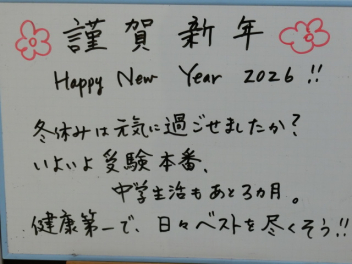 謹賀新年
Happy New Year 2026!!
冬休みは元気に過ごせましたか?
いよいよ受験本番、
中学生活もあと3ヵ月。
健康第一で、日々ベストを尽くそう!!